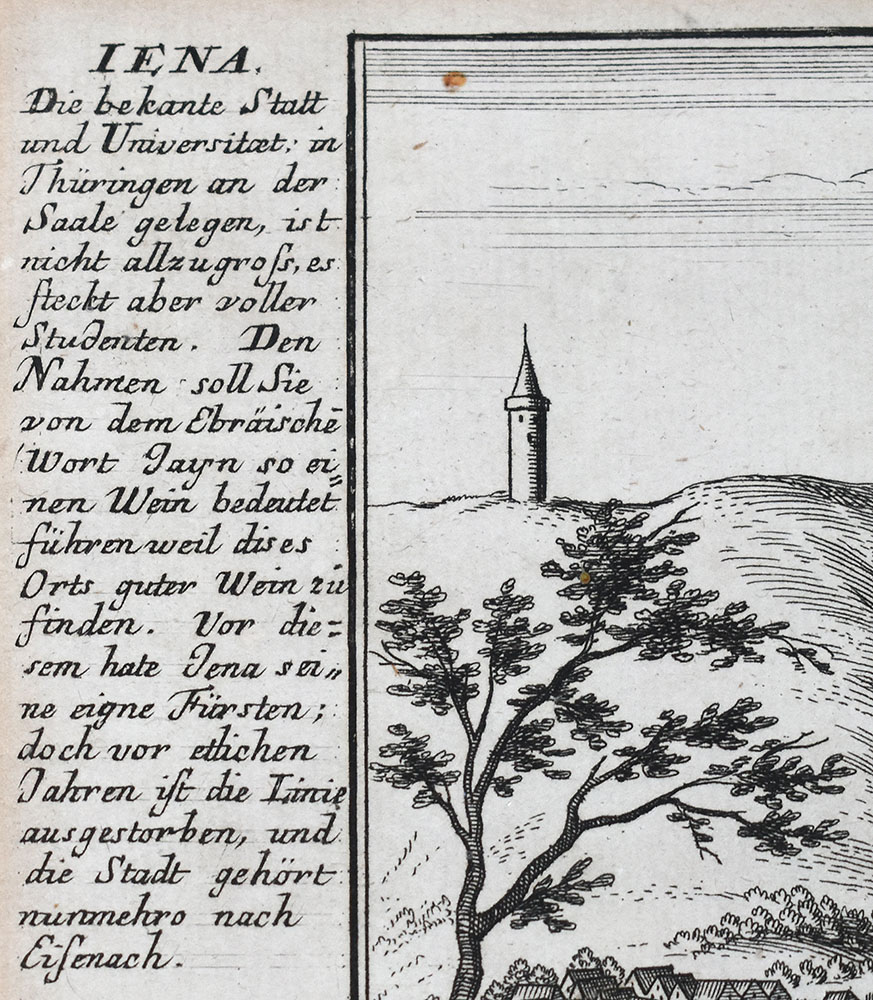 IENA.
Die bekante Statt
und Universitæt, in
Thüringen an der
Saale gelegen, ist
nicht allzugroſs, es
ſteckt aber voller
Studenten. Den
Nahmen soll Sie
von dem Ebräischē
Wort Jayn so ei=
nen Wein bedeutet
führen weil dises
Orts guter Wein zu
finden. Vor die=
sem hate Jena sei„
ne eigne Fürsten;
doch vor etlichen
Jahren iſt die Linie
ausgestorben, und
die Stadt gehört
nunmehro nach
Eiſenach.